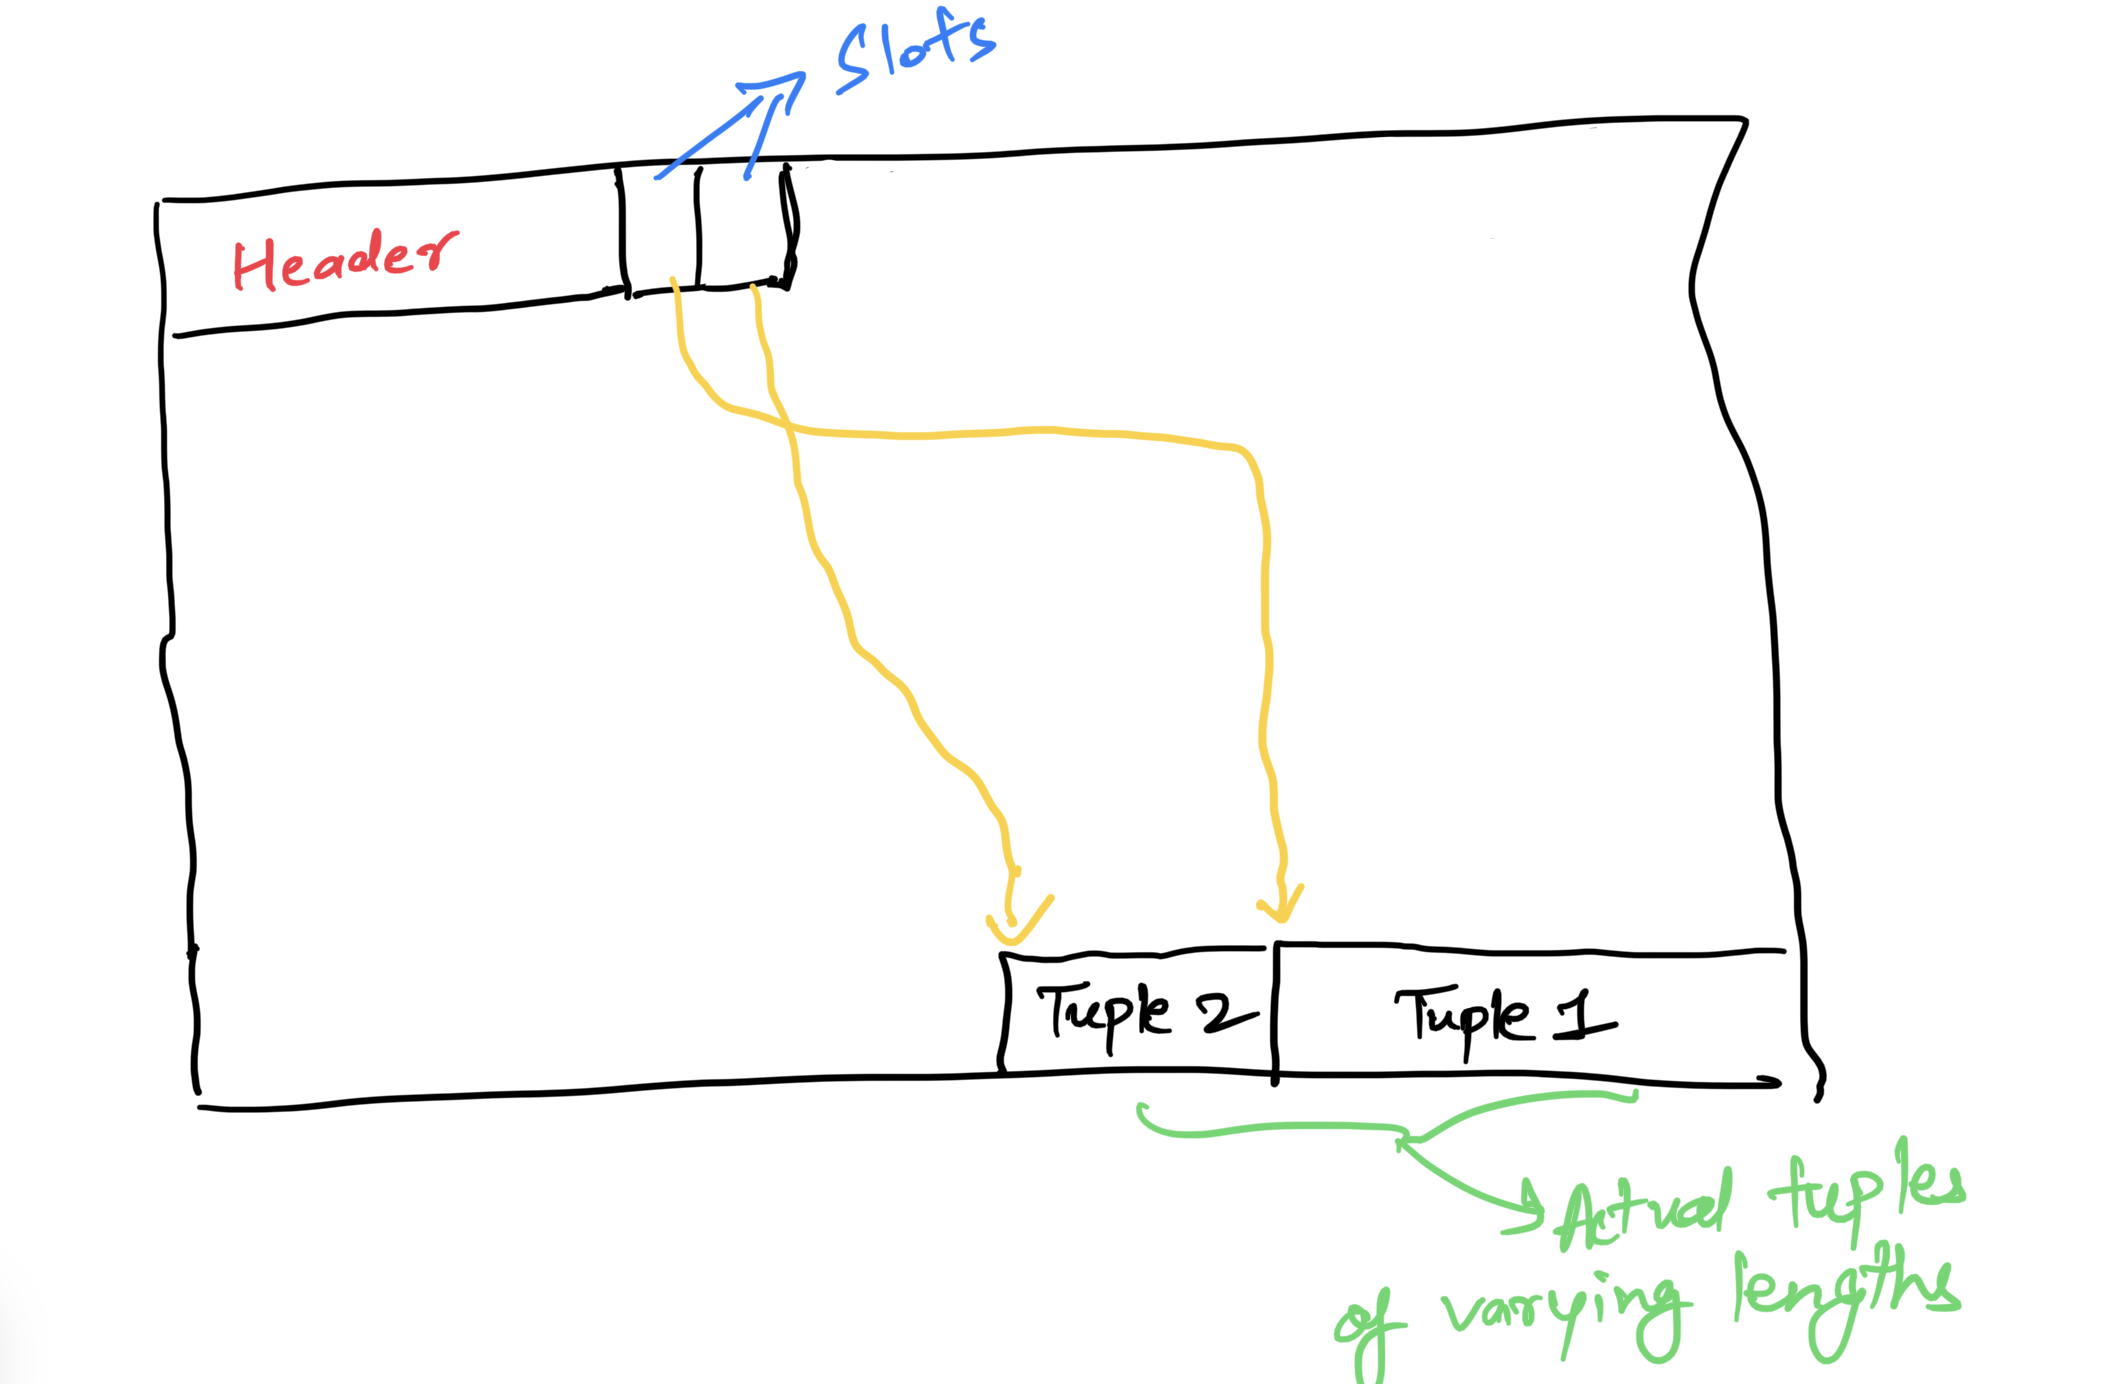 Slots
Header
Tuple 2
Tuple 1
Actual tuples
of varying lengths